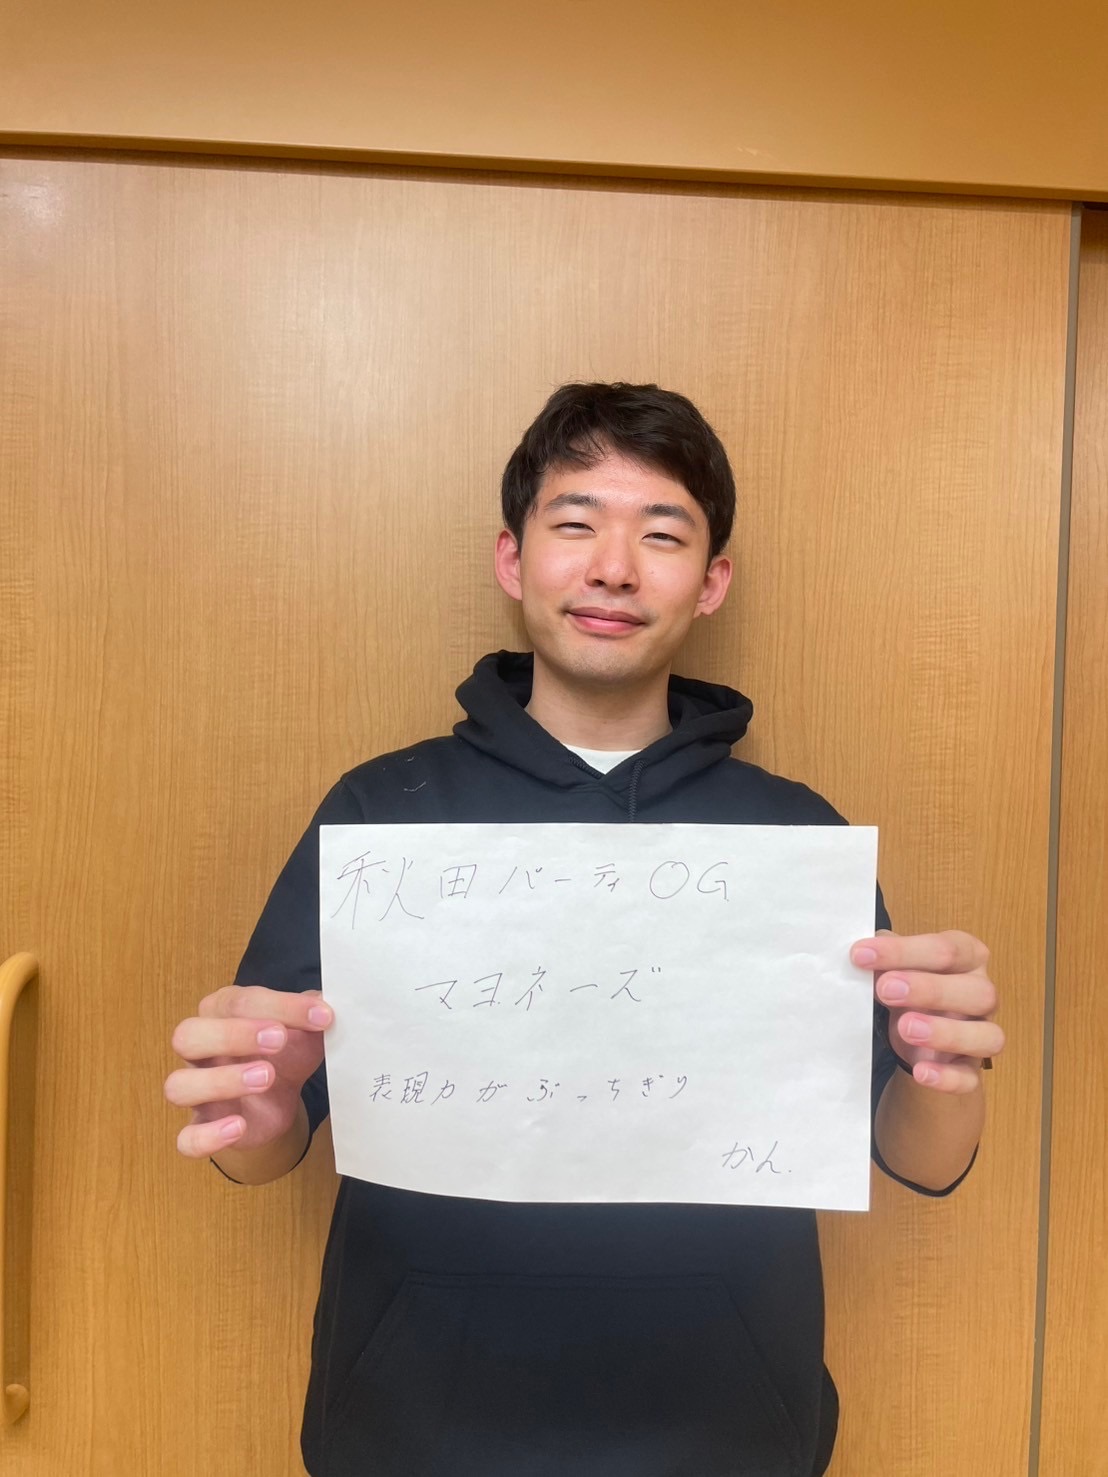 秋田パーティOG
マヨネーズ
表現力がぶっちぎり
かん.